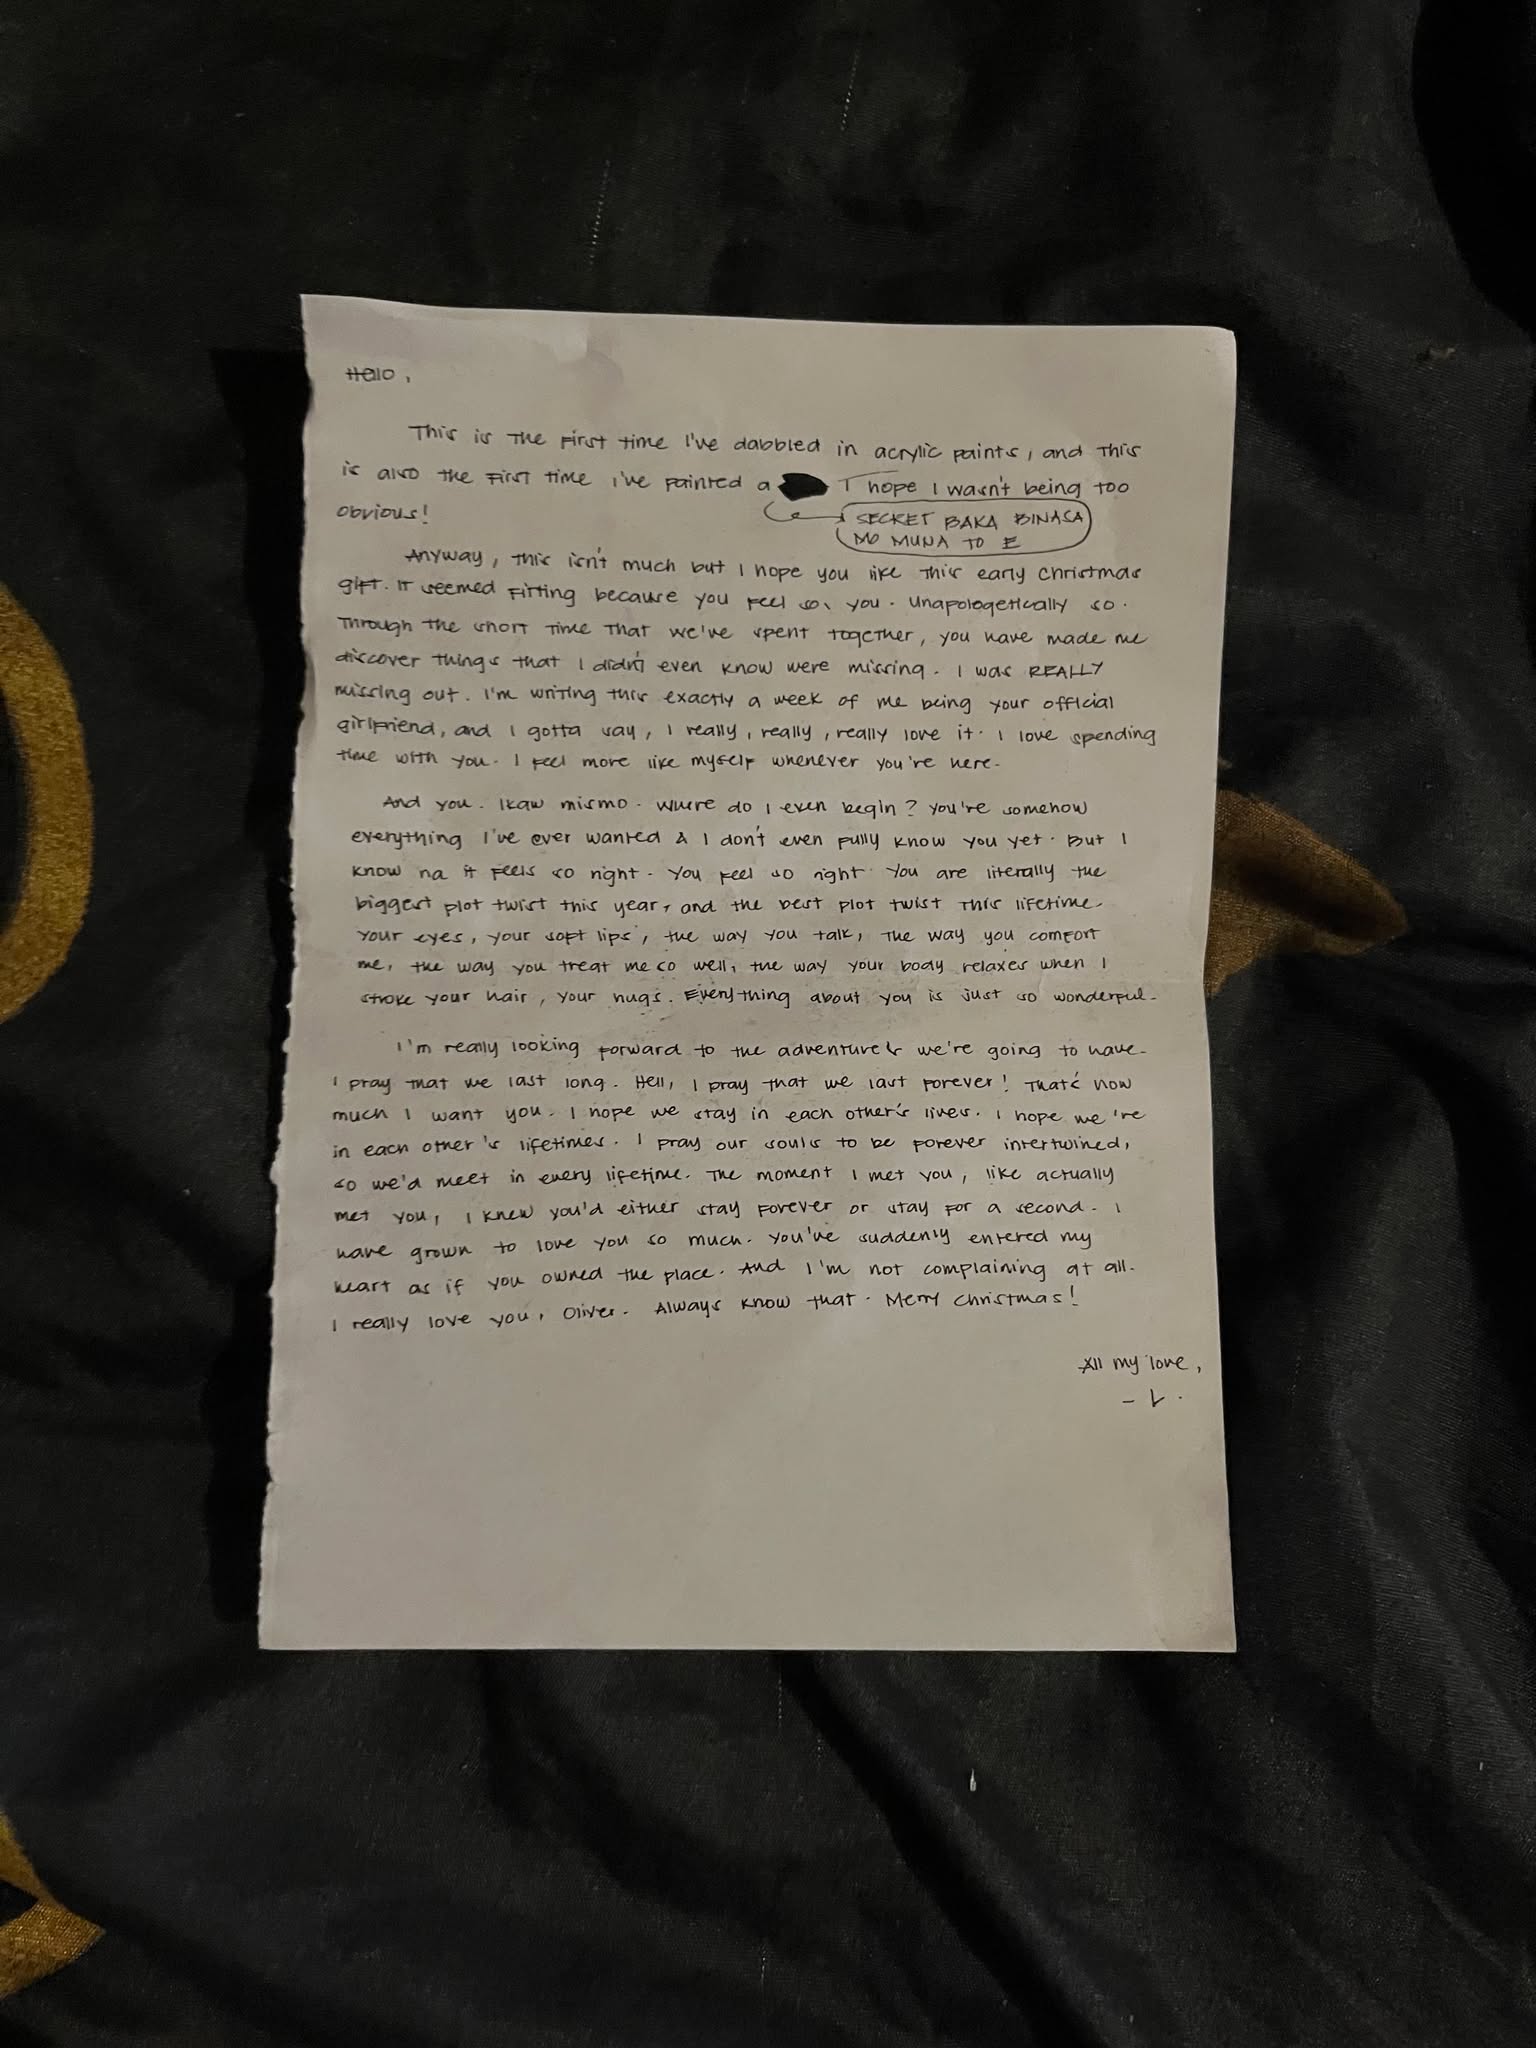 Hello,
This is the first time I've dabbled in acrylic paints, and this
is also the first time I've painted a I hope I wasn't being too
obvious!
SECRET BAKA BINASA
MO MUNA TO E
Anyway, this isn't much but I hope you like this early Christmas
gift. It seemed fitting because you feel so, you. Unapologetically so.
Through the short time that we've spent together, you have made me
discover things that I didn't even know were missing. I was REALLY
missing out. I'm writing this exactly a week of me being your official
girlfriend, and I gotta say, I really, really, really love it. I love spending
time with you. I feel more like myself whenever you're here.
And you. Ikaw mismo. Where do I even begin? You're somehow
everything I've ever wanted & I don't even fully know you yet. But I
know na it feels so right. You feel so right. You are literally the
biggest plot twist this year, and the best plot twist this lifetime.
Your eyes, your soft lips, the way you talk, the way you comfort
me, the way you treat me so well, the way your body relaxes when I
stroke your hair, your hugs. Everything about you is just so wonderful.
I'm really looking forward to the adventures we're going to have.
I pray that we last long. Hell, I pray that we last forever! That's how
much I want you. I hope we stay in each other's lives. I hope we're
in each other's lifetimes. I pray our souls to be forever intertwined,
so we'd meet in every lifetime. The moment I met you, like actually
met you, I knew you'd either stay forever or stay for a second. I
have grown to love you so much. You've suddenly entered my
heart as if you owned the place. And I'm not complaining at all.
I really love you, Oliver. Always know that. Merry Christmas!
All my love,
- L.